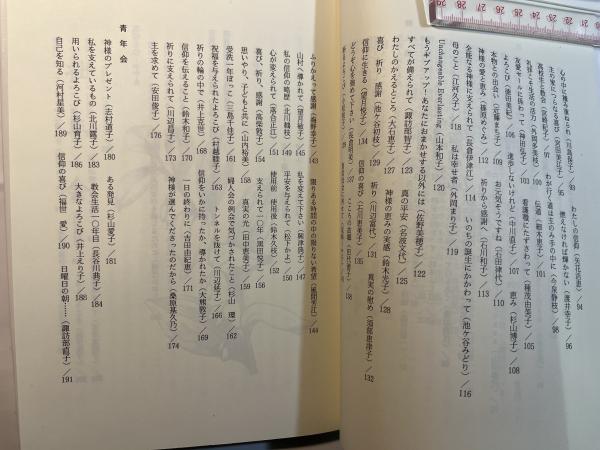 心の中に種を蒔かれ（川島保子）/93
わたしの信仰（矢花初恵）/94
主の愛につらなる喜び（宮司美江子）/95
燃えなければ輝かない（渡井幸子）/96
高校生と教会（宮崎和子）/97
わが行く道は主のみ手の中に（今泉静枝）/98
礼拝こそ生活の活力（外岡多美枝）/100
伝道（細木恵子）/101
友愛セールに携わって（神田弘子）/103
看護職にたずさわって（種茂由美子）/105
よろこび（後田美紀）/106
進歩しないけれど（中川直子）/107
恵み（杉山博子）/108
本物との出会い（近藤まち子）/109
お元気そうですね（石田律代）/110
神様の愛と恵み（篠原めぐみ）/112
祈りから感謝へ（石川和子）/113
全能なる神様に支えられて（長倉伊津江）/114
いのちの誕生にかかわって（池ヶ谷みどり）/116
母のこと（江河久子）/118
私は幸せ者（外岡まり子）/119
Unchangeable Everlasting（山本和子）/120
もうギブアップ！あなたにおまかせする以外には（佐野美穂子）/122
すべてが備えられて（諏訪部智子）/123
真の平安（名波文代）/125
わたしのかえるところ（大石恵子）/127
神様の恵みの実感（鈴木光子）/128
喜び 祈り 感謝（池ヶ谷初枝）/129
祈り（川辺寛代）/131
信仰に生きる（望月悦子）/134
真実の慰め（須部恵津子）/132
どうぞ心を鎮めて下さい（長倉明美）/137
信仰の喜び（石川恵美子）/135
ふりかえって感謝（海野幸子）/143
限りある時間の中の限りない希望（風間芳江）/144
山村へ導かれて（望月敏子）/145
私を変えて下さい（興津満子）/147
私の信仰の略歴（北川鶴枝）/149
平安を与えられて（松下かよ）/150
心が変えられて（落合正江）/151
使用前 使用後（鈴木久枝）/152
喜び、祈り、感謝（高柴敦子）/154
支えられて一〇年（黒田悦子）/156
思いやり、子どもと共に（山内裕美）/158
真実の光（田中恵美子）/159
受洗一年ぽっこ（三島千佳子）/161
婦人会の例会で気づかされたこと（杉山 理）/162
祝福を与えられたよろこび（村越輝子）/163
トンネルを抜けて（川辺延子）/166
祈りの輪の中で（井上充世）/168
信仰をいかに持ったか、導かれたか（大熊敦子）/169
信仰を伝えること（鈴木和子）/170
一日の終わりに（吉田由紀恵）/171
祈りに支えられて（川辺昌子）/173
神様が選んでくださったのだから（桑原基久乃）/174
主を求めて（安田俊子）/176
青年会
神様のプレゼント（志村道子）/180
ある発見（杉山愛子）/181
私を支えているもの（北川露子）/183
教会生活一〇年目（長谷川典子）/184
用いられるよろこび（杉山育子）/186
大きなよろこび（井上えり子）/188
自己を知る（河村星美）/189
信仰の喜び（福世 愛）/190
日曜日の朝……（諏訪部直子）/191
28 27 26 25